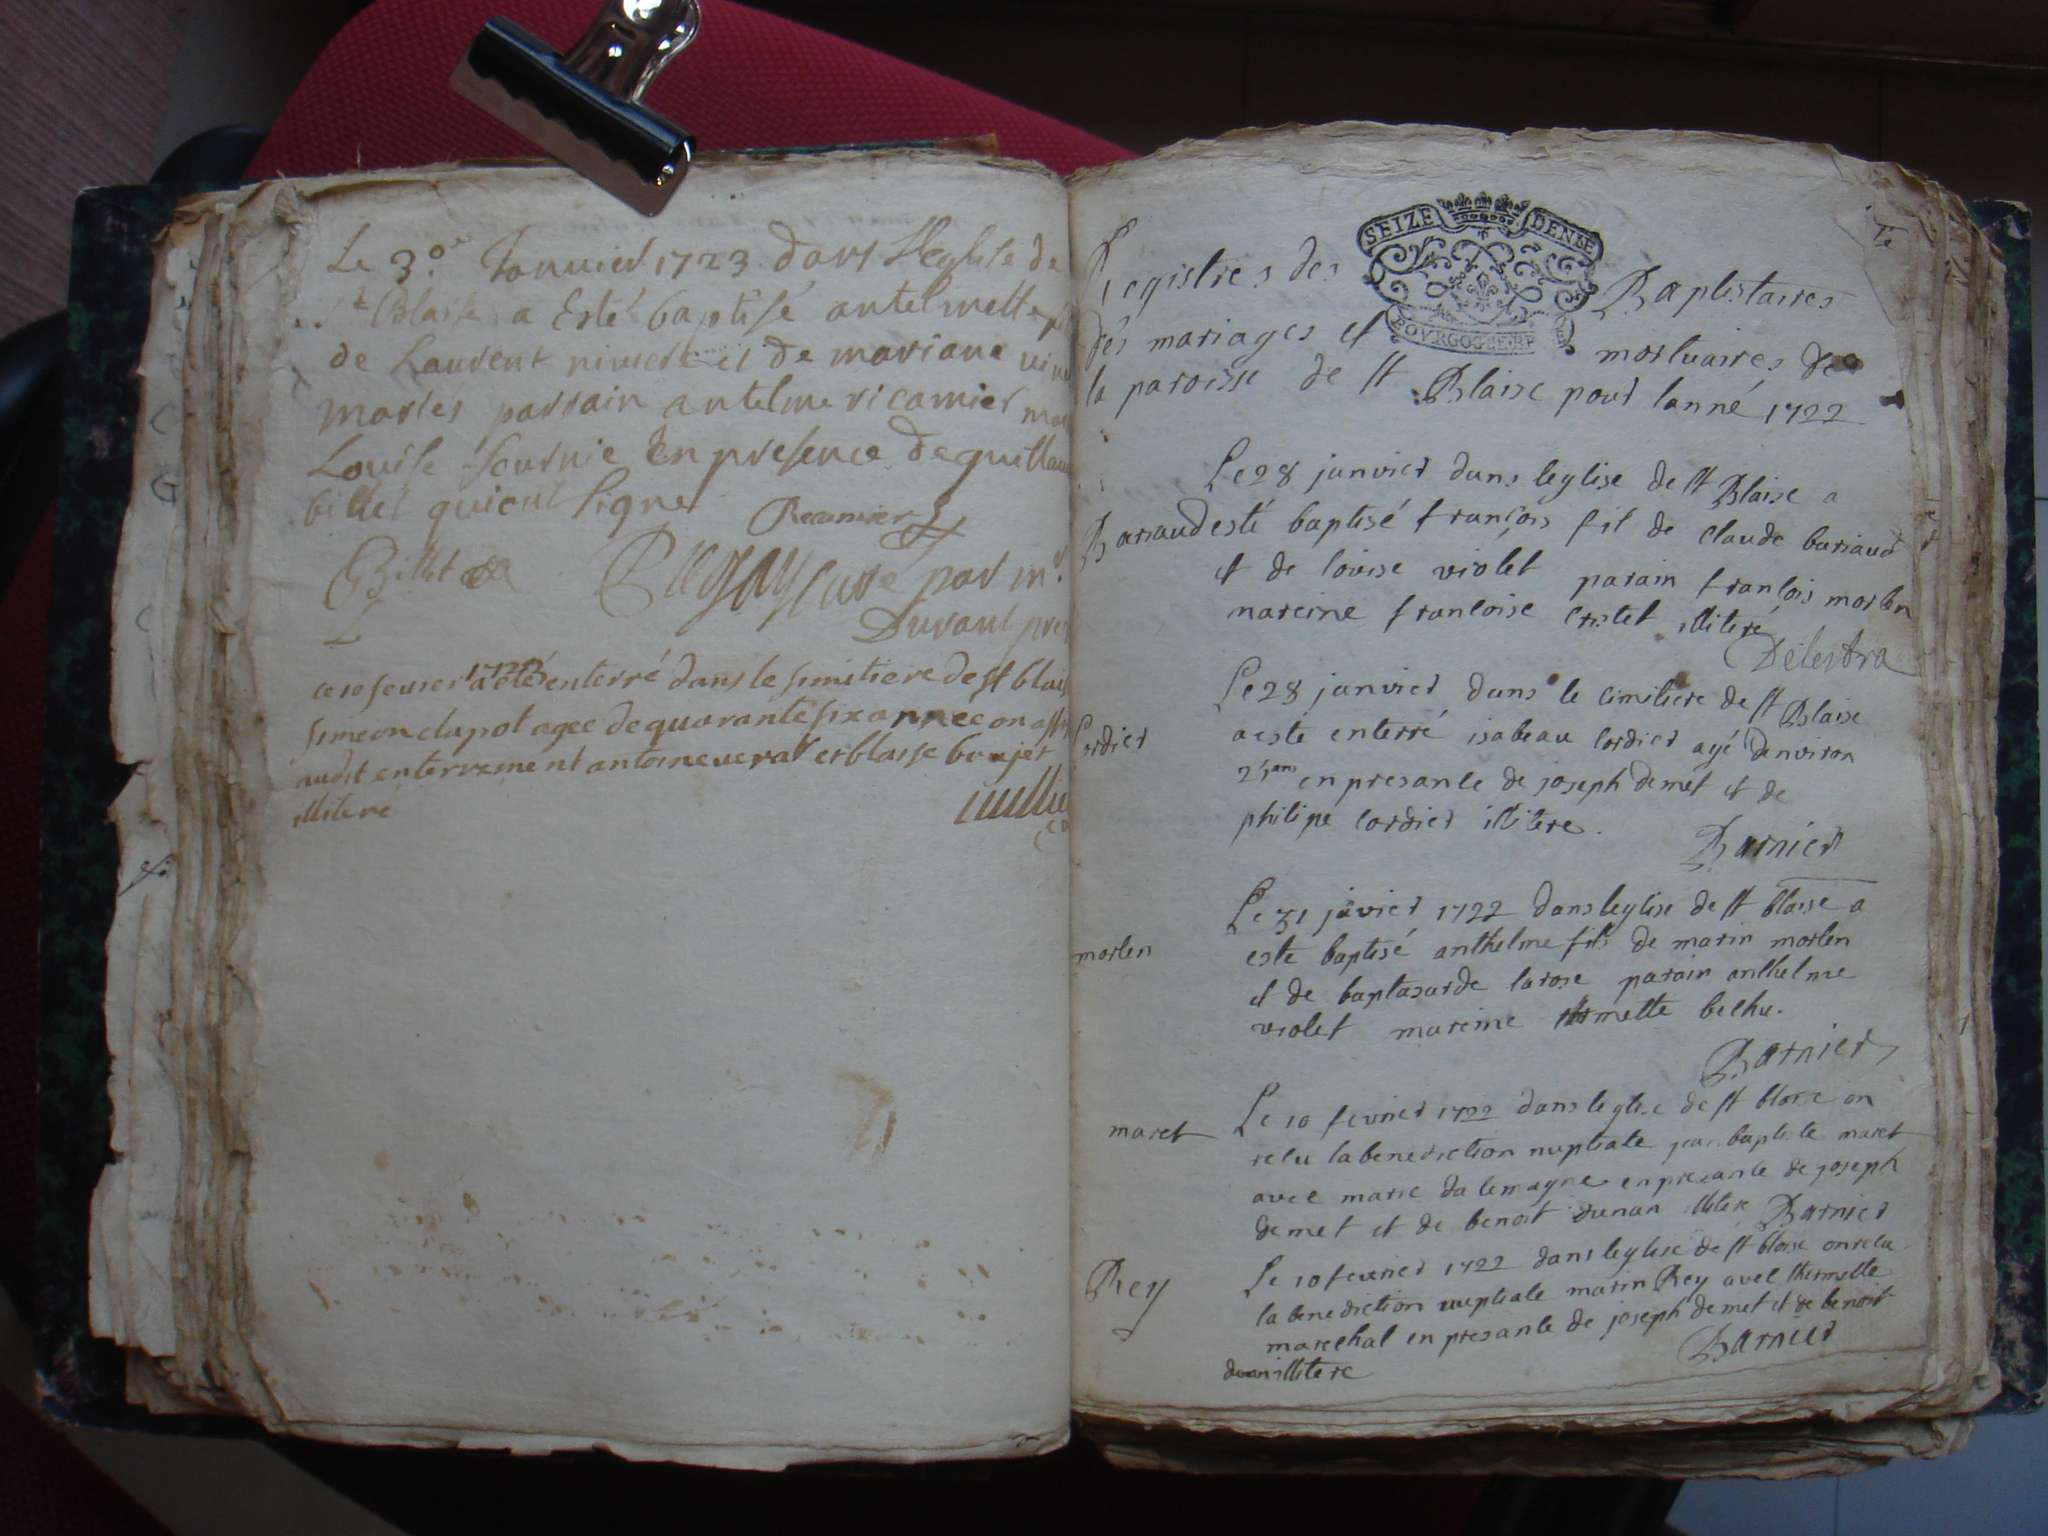 Le 3.e Januier 1723 dans Leglise de
st Blaise a Esté baptisé antelmette
de Laurent niviere et de mariane
maries parrain antelme ricamier
Louise fournie En presence de guillau
billet qui ont signe
Recamier
Billet
Pugay Curé par mr.
Durant
ce 10 feurier 1723 a été enterré dans le simitiere de st blais
simeon clapot agee de quarante six annee on
audit enterrement antoine et blaise boujet
illiteré
SEIZE DENIE
BOVRGOGNE BR
Registres des Baptistaires
des mariages et mortuaires de
la paroisse de st Blaise pour lanné 1722
Le 28 janvier dans leglise de st Blaise a
Bariaud esté baptisé françois fil de claude bariaud
et de lovise violet parain françois morlen
mareine françoise Cristet illiteré
Delestra
Le 28 janvier dans le cimitiere de st Blaise
Cordier aesté enterré isabeau Cordier agé denviron
25 ans en presance de joseph demet et de
philipe Cordier illitere.
Barnier
Le 31 jāvier 1722 dans leglise de st blaise a
morlen este baptisé anthelme fils de marin morlen
et de baptasarde larose parain anthelme
violet mareine mette
Barnier
Le 10 fevrier 1722 dans leglise de st blaise on
maret recu la benediction nuptiale jean baptiste maret
avec marie dalemagne en presance de joseph
demet et de benoit dunan illitere Barnier
Le 10 fevrier 1722 dans leglise de st blaise on recu
Rey la benediction nuptiale marin Rey avec thermette
marechal en presance de joseph demet et de benoit
dunan illitere
Barnier